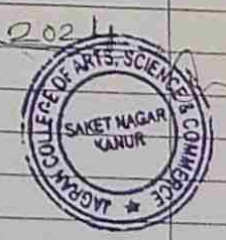 2024
JAGRAN COLLEGE OF ARTS, SCIENCE & COMMERCE
SAKET NAGAR
KANUR